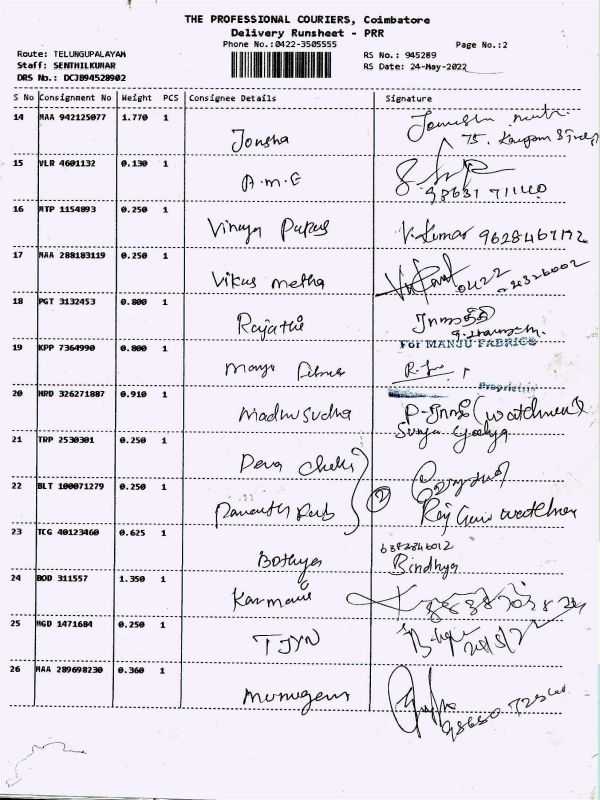 THE PROFESSIONAL COURIERS, Coimbatore
Delivery Runsheet - PRR
Phone No.:0422-3505555
Page No.:2
Route: TELUNGUPALAYAM
Staff: SENTHILKUMAR
DRS No.: DCJB94528902
RS No.: 945289
RS Date: 24-May-2022
S No Consignment No Weight PCS Consignee Details Signature
14 MAA 942125077 1.770 1 Jonsha
75.
15 VLR 4601132 0.130 1 A.M.E
98631 711440
16 MTP 1154893 0.250 1 Vinaya V.Kumar 9628467172
17 MAA 288183119 0.250 1 Vikas metha 0422
18 PGT 3132453 0.800 1 Rajathi
For MANJU FABRICS
19 KPP 7364990 0.800 1
Proprietrix
20 HRD 326271887 0.910 1 Madhusudha (watchmen)
Surya
21 TRP 2530301 0.250 1 Deva
22 BLT 100071279 0.250 1 2 Raj watchmen
23 TCG 40123460 0.625 1 Bothya 6382846012
Bindhya
24 BOD 311557 1.350 1 Karmani
25 MGD 1471684 0.250 1 TJYN
26 MAA 289698230 0.360 1 Murugesn